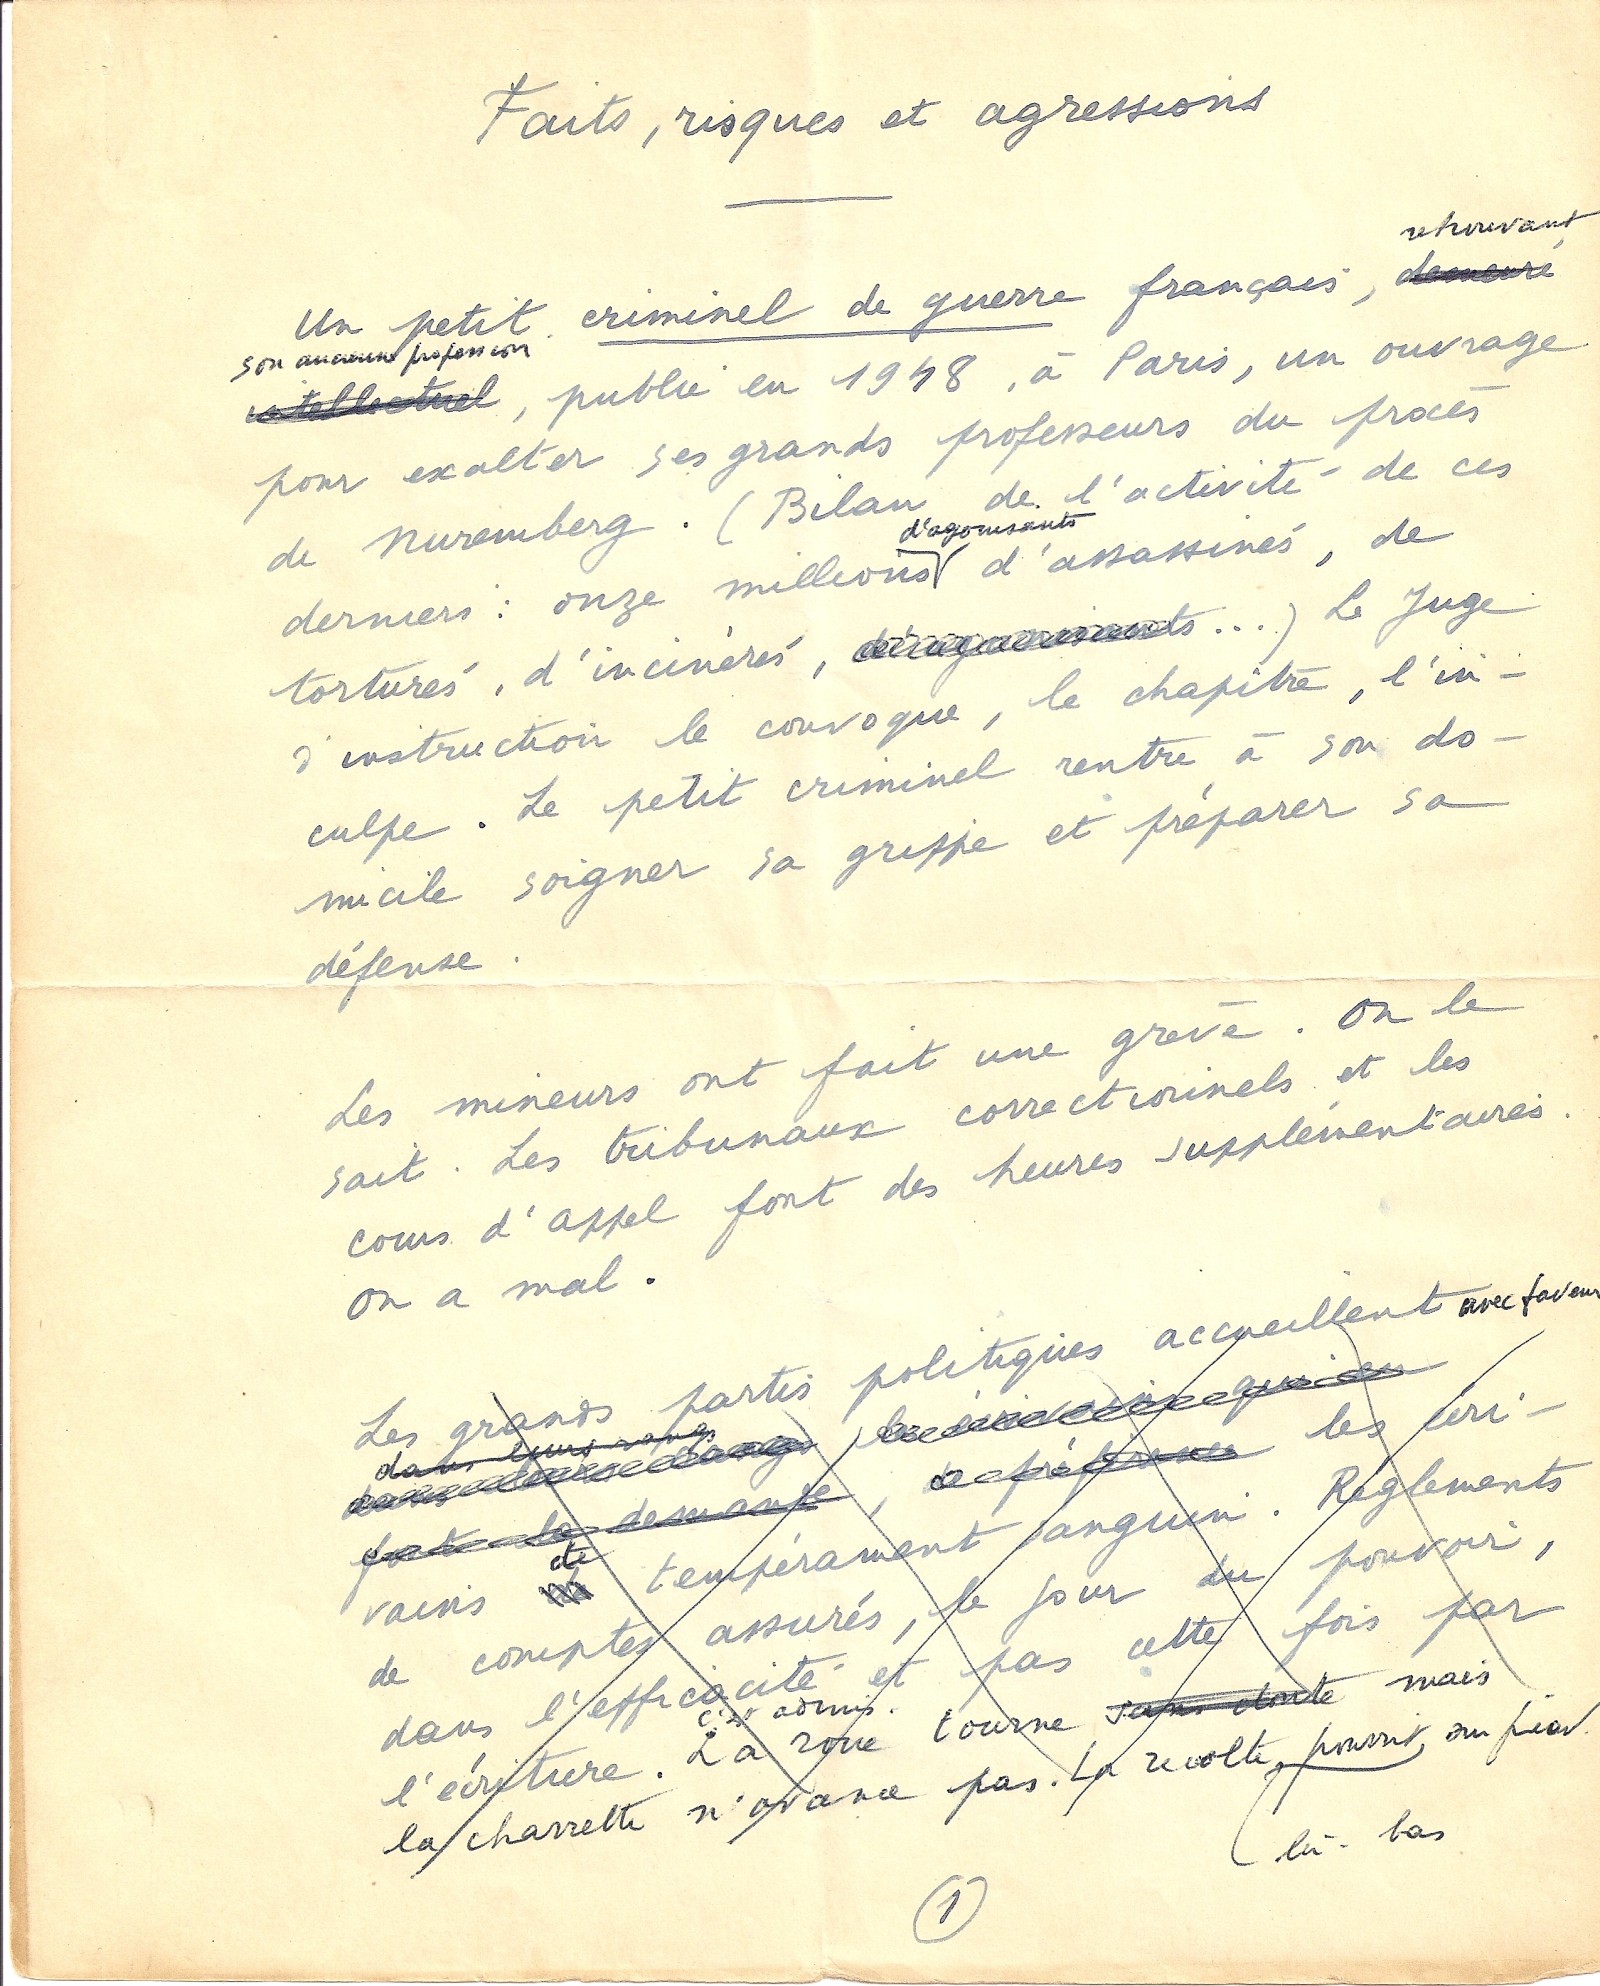 Faits, risques et agressions
retrouvant
Un petit criminel de guerre français, demeuré
son ancienne profession
intellectuel, publie en 1948, à Paris, un ouvrage
pour exalter ses grands professeurs du procès
de Nuremberg. (Bilan de l'activité de ces
d'agonisants
derniers : onze millions d'assassinés, de
torturés, d'incinérés, d'agonisants...) Le Juge
d'instruction le convoque, le chapitre, l'in-
culpe. Le petit criminel rentre à son do-
micile soigner sa grippe et préparer sa
défense.
Les mineurs ont fait une grève. On le
sait. Les tribunaux correctionnels et les
cours d'appel font des heures supplémentaires.
On a mal.
Les grands partis politiques accueillent avec faveur
dans leurs rangs
dans leurs rangs, les écrivains qui en
font la demande, de préférence les écri-
de
vains tempérament sanguin. Règlements
de comptes assurés, le jour du pouvoir,
dans l'efficacité et pas cette fois par
c'est admis.
l'écriture. La roue tourne sans doute mais
la charrette n'avance pas. La récolte pourrit sur pied.
là-bas
1